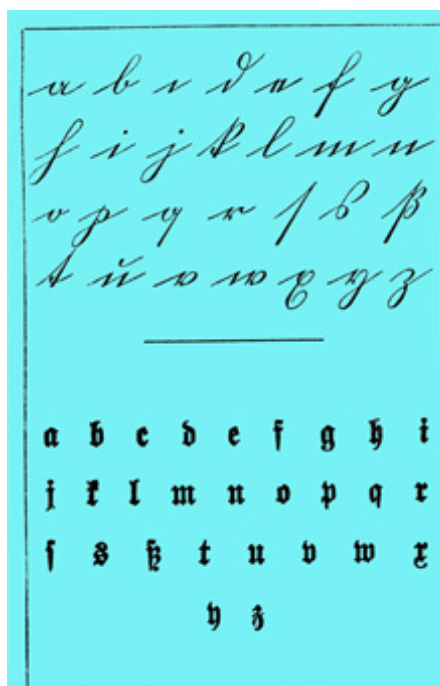 a b c d e f g
h i j k l m n
o p q r ſ s ß
t u v w x y z
a b c d e f g h i
j k l m n o p q r
ſ s ß t u v w x
y z